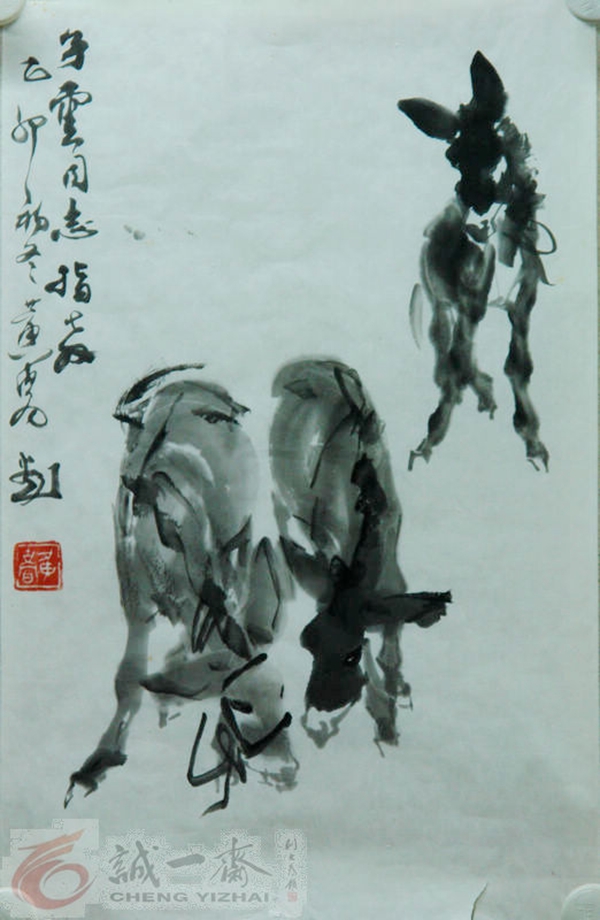 子雲同志指教
乙卯初冬黄胄画
誠一齋
CHENG YIZHAI